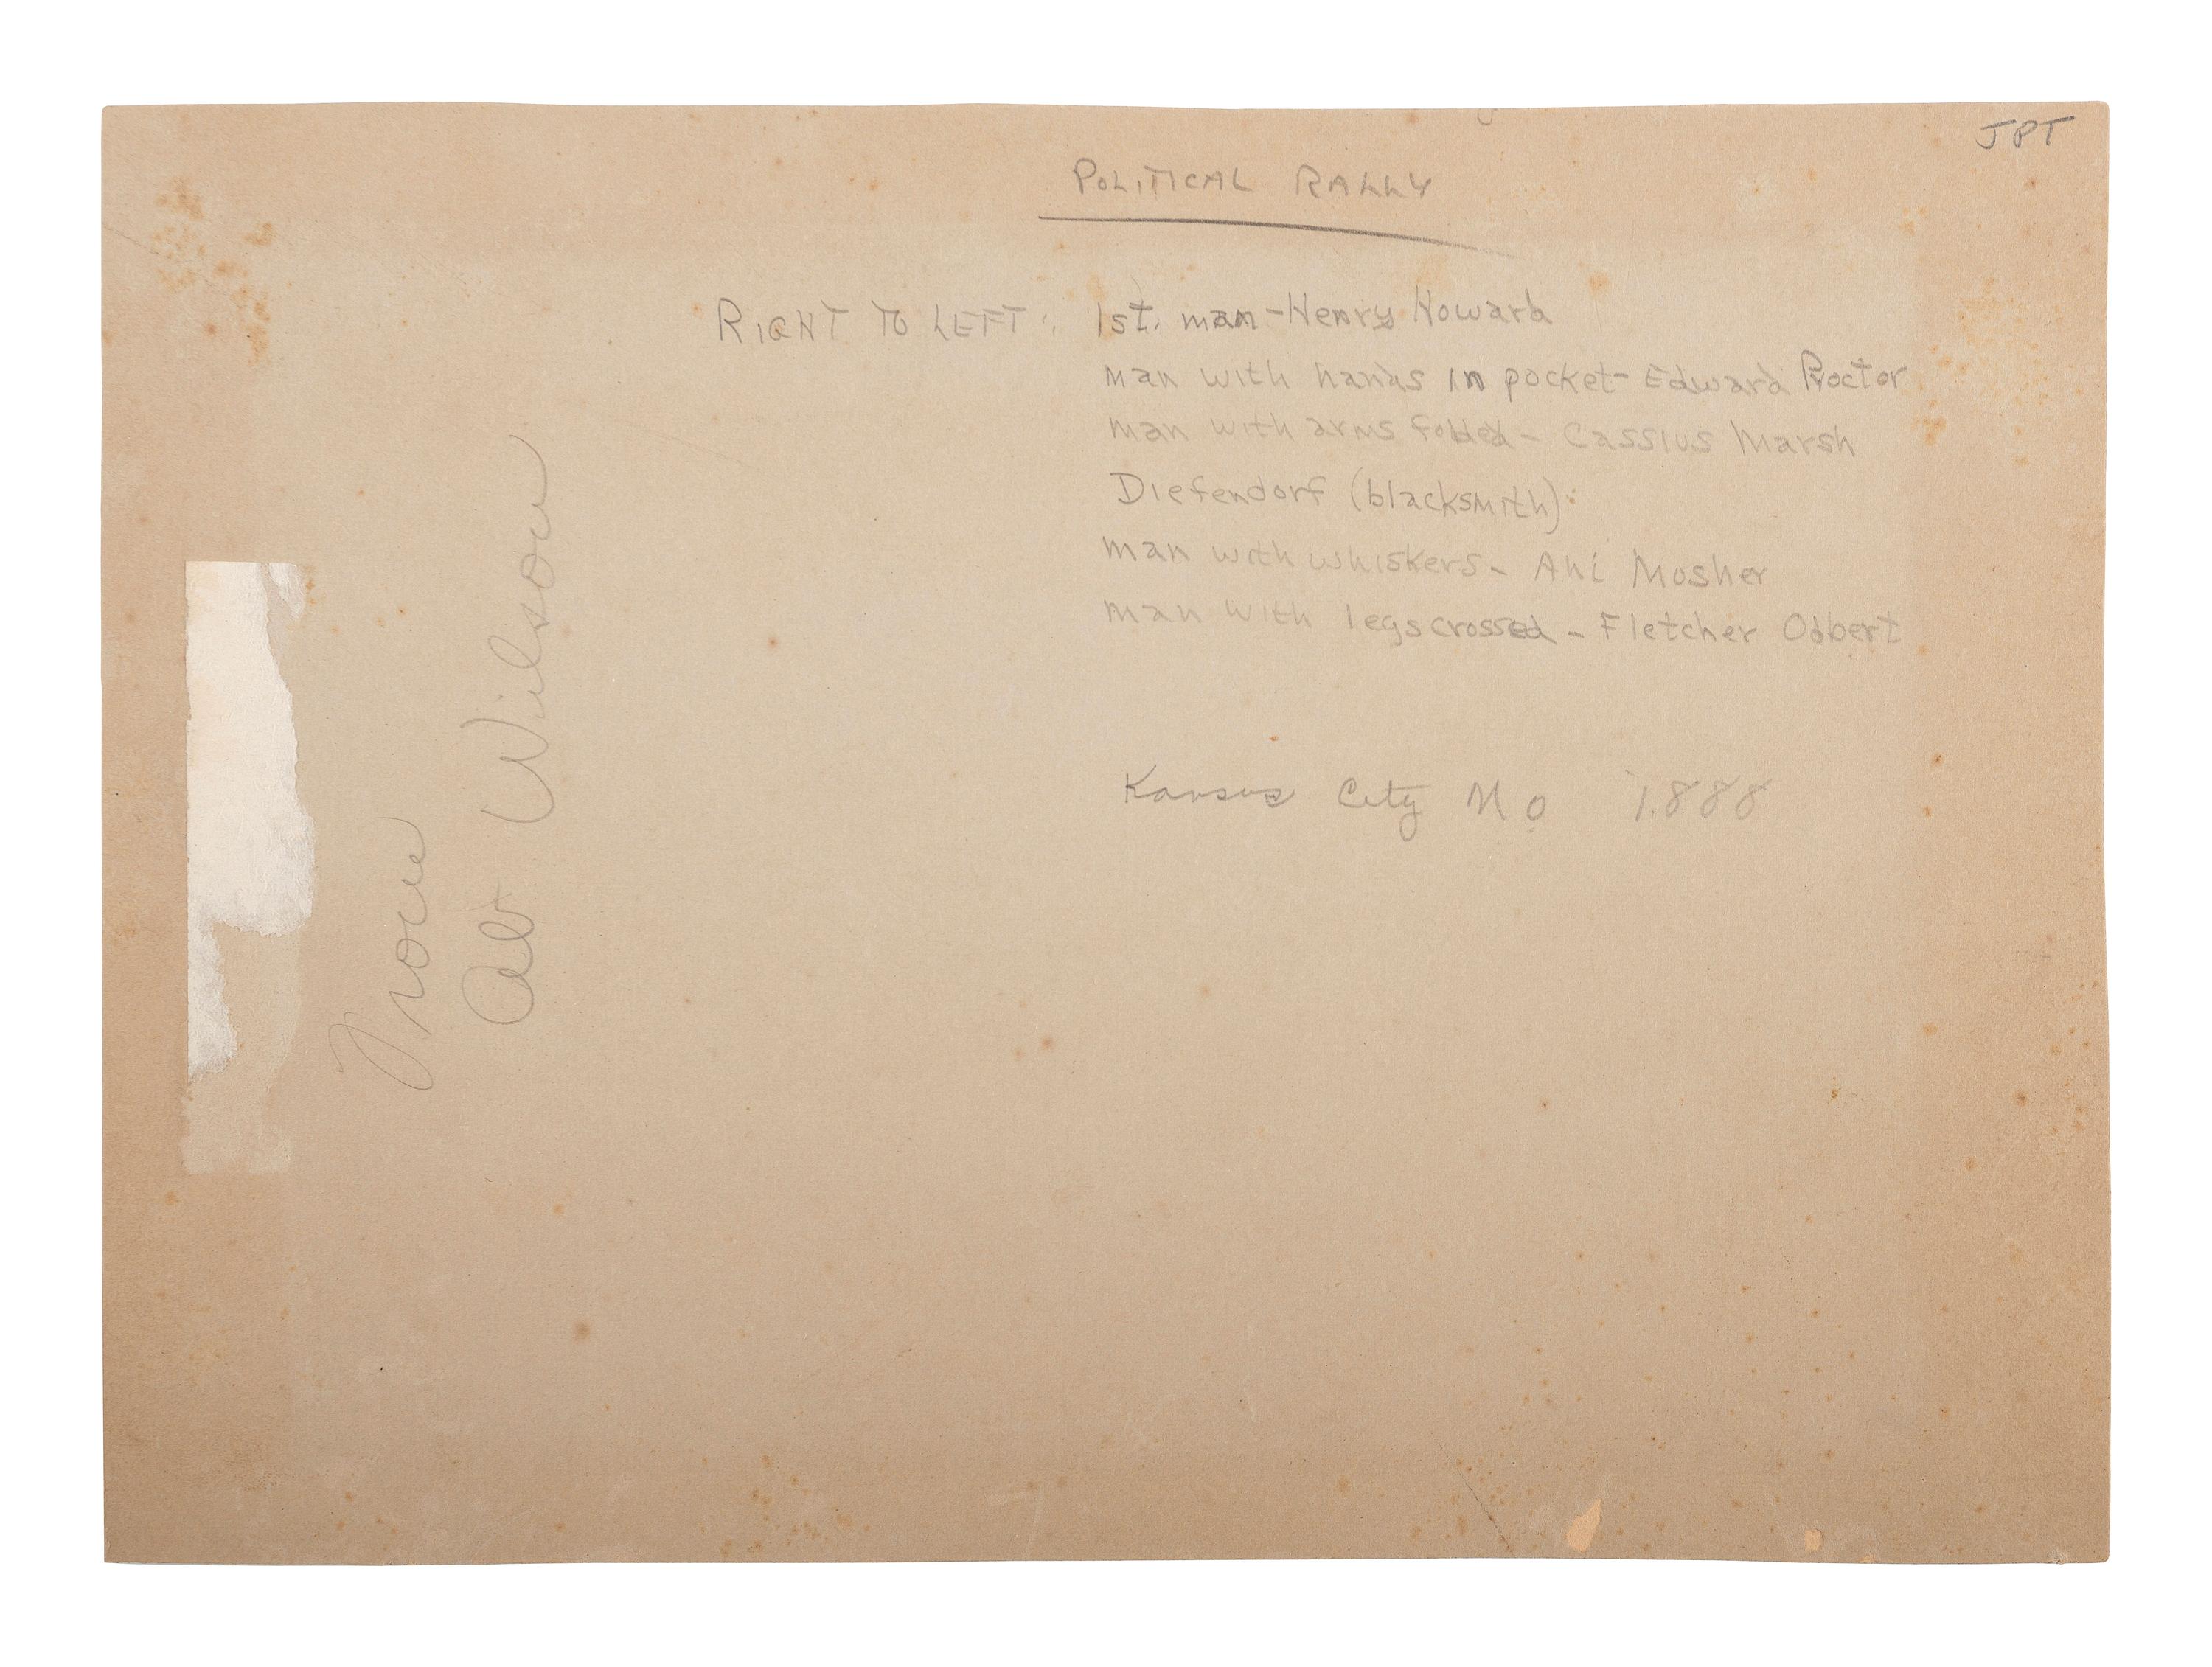 JPT
POLITICAL RALLY
RIGHT TO LEFT: 1st. man - Henry Howard
man with hands in pocket - Edward Proctor
man with arms folded - Cassius Marsh
Diefendorf (blacksmith)
man with whiskers - Ahi Mosher
man with legs crossed - Fletcher Odbert
Kansas City Mo 1888
Wilson